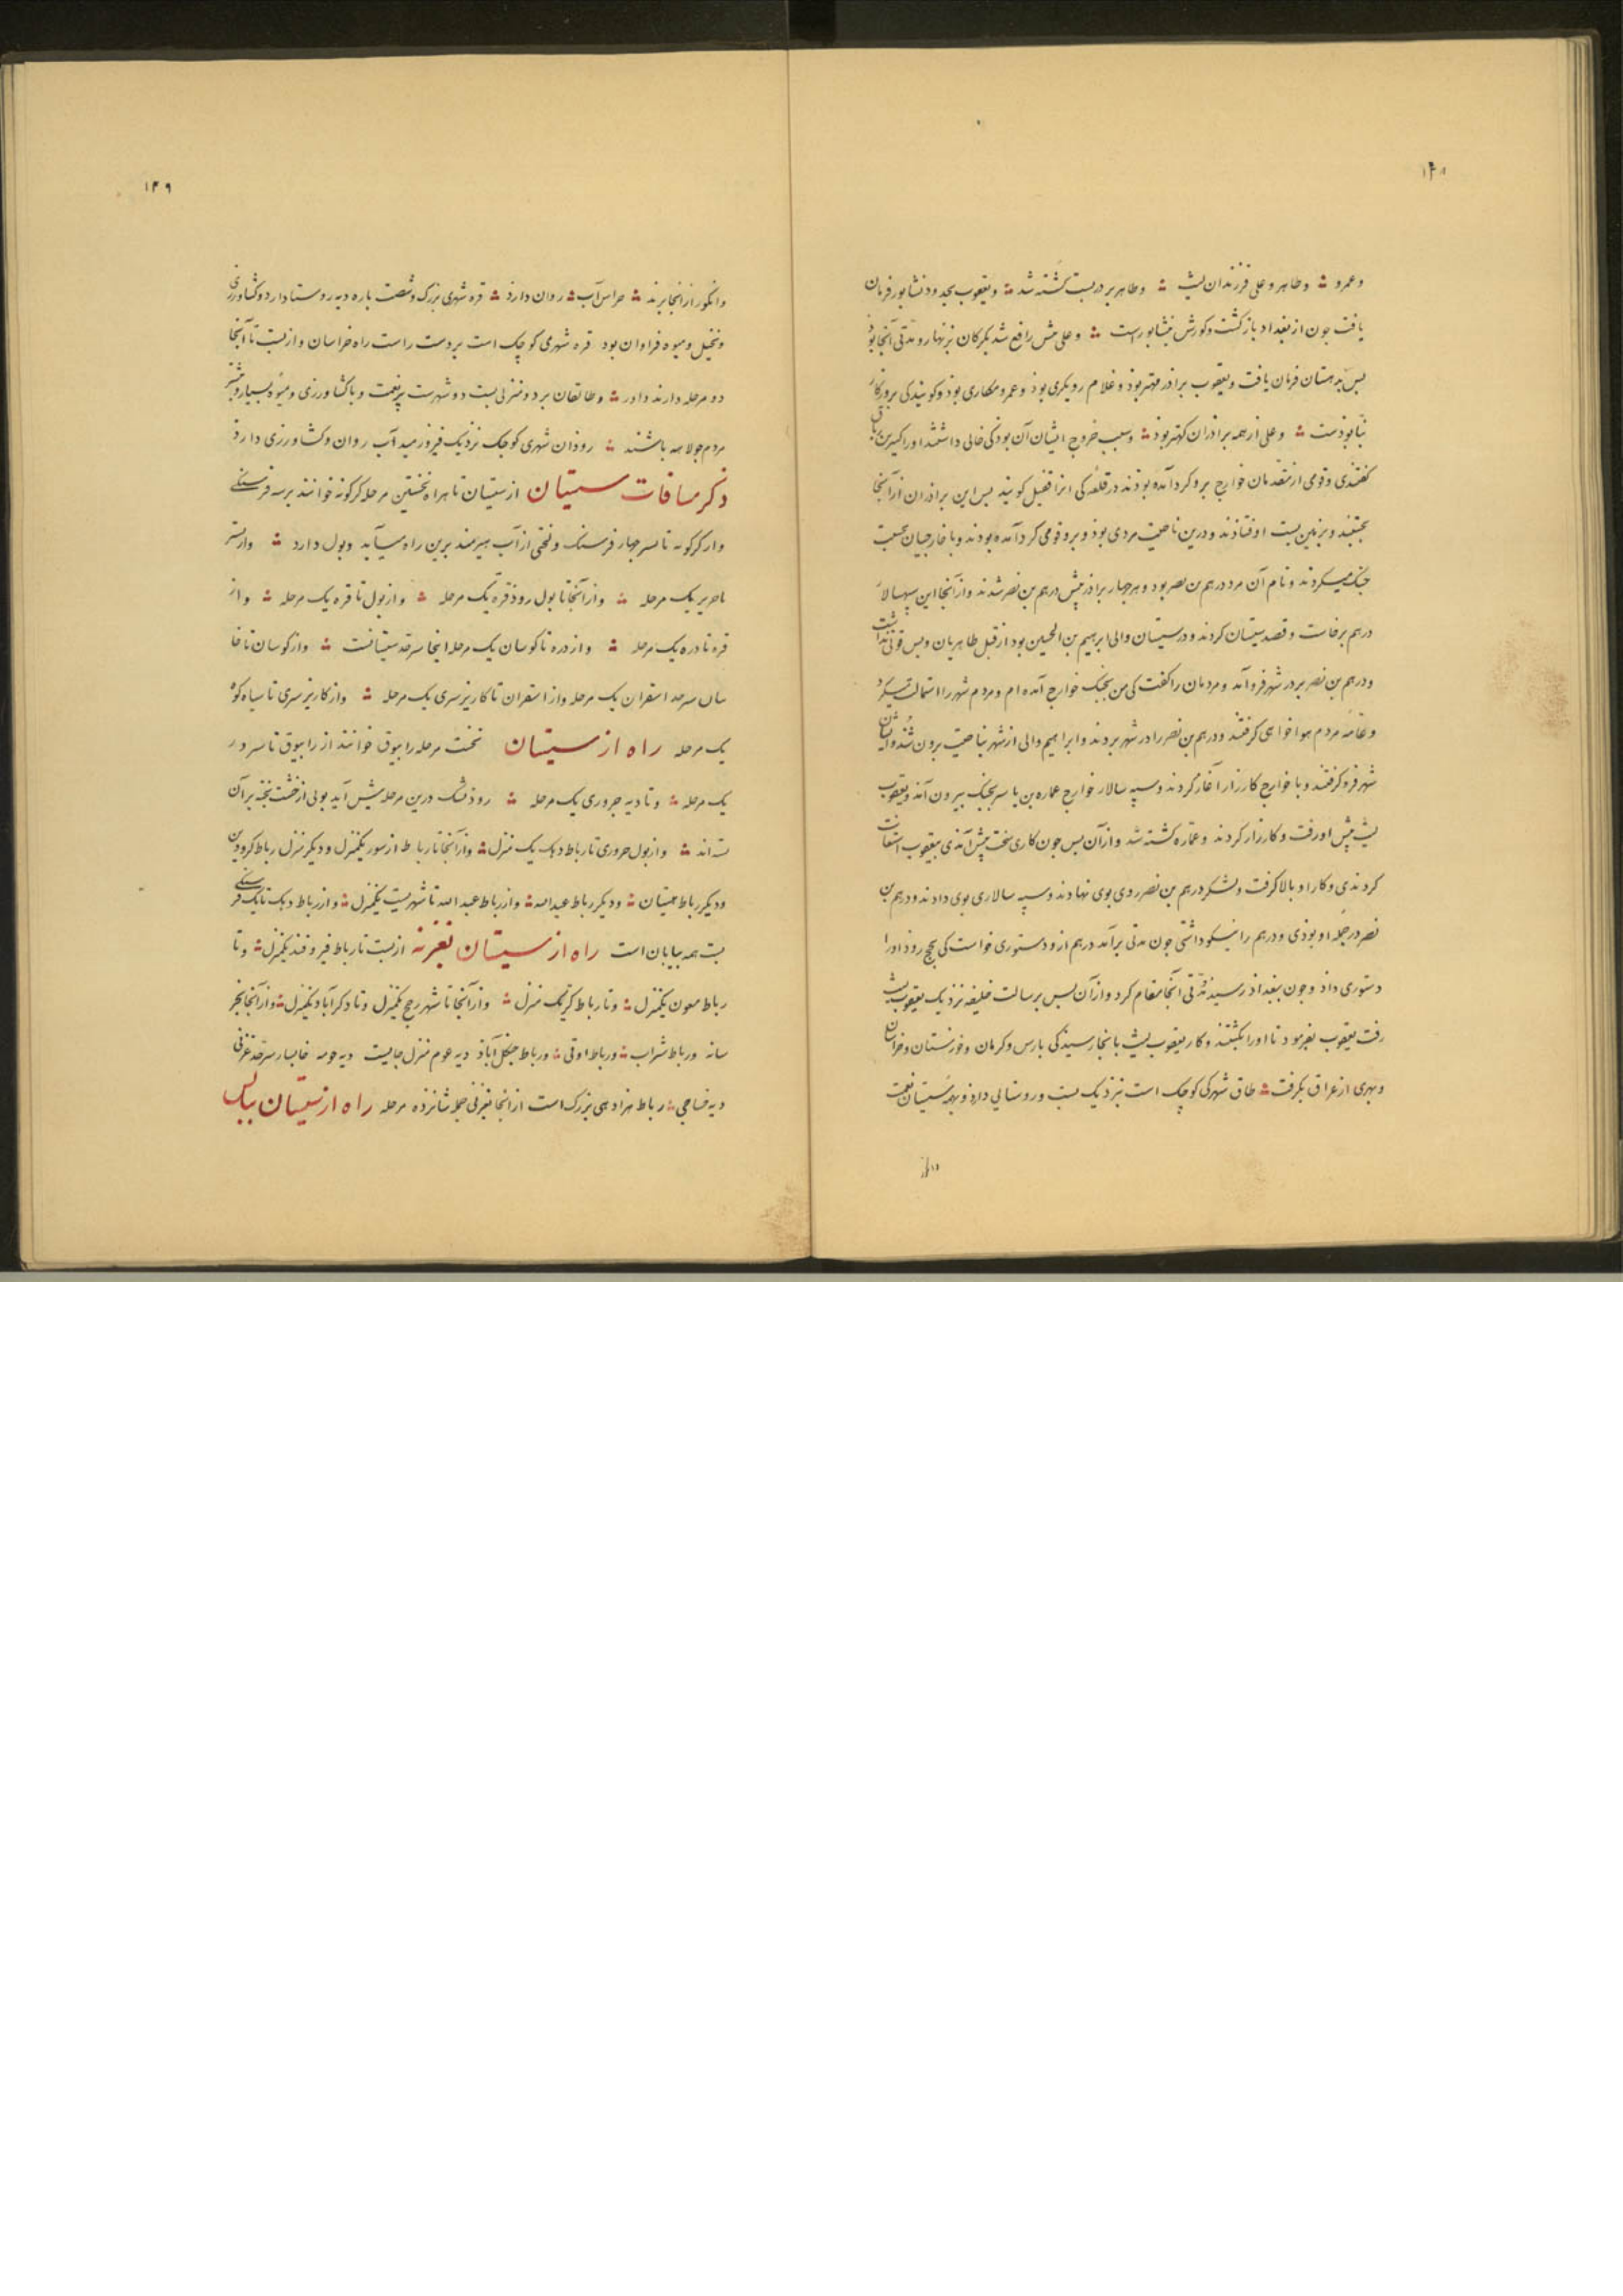 ۱۴۸
وعمرو وطاهر وعلی فرزندان لیث وطاهر بر در بست کشته شد ویعقوب بجد ود نشابور فرمان
یافت جون از بغداد باز کشت وکورش بنشابورست وعلی مش رافع شد بکرکان بزنهار ومدتی آنجا بوذ
بس بدهستان فرمان یافت ویعقوب برادر مهتر بوذ وغلام رویکری بوذ وعمرو مکاری بوذ وکویندکی بروزکار
بنا بوذست وعلی از همه برادران کهتر بوذ وسبب خروج ایشان آن بود کی خالی داشتند اورا کثیر بن رقاق
کفتندی وقومی از متقدمان خوارج برو کرد آمده بوذند در قلعه کی انرا قفیل کویند بس این برادران از آنجا
بجستند وبزمین بست اوفتاذند ودرین ناحیت مردی بوذ وبرو قومی کرد آمده بوذند وبا خارجیان بحسبت
جنک میکردند ونام آن مرد درهم بن نصر بود وهر جهار برادر پیش درهم بن نصر شدند واز آنجا این سپهسالار
درهم برخاست وقصد سیستان کردند ودر سیستان والی ابرهیم بن الحسین بود از قبل طاهریان وبس قوتی نداشت
ودرهم بن نصر بر در شهر فروآمد ومردمان را کفت کی من بجنک خوارج آمده ام ومردم شهر را استمالت میکرد
وعامه مردم هوا خواهی کرفتند ودرهم بن نصر را در شهر بردند وابراهیم والی از شهر بناحیت برون شد وایشان
شهر فروکرفتند وبا خوارج کارزار آغاز کردند وسپه سالار خوارج عماره بن یاسر بجنک بیرون آمد ویعقوب
لیث پیش او رفت وکارزار کردند وعماره کشته شد واز آن بس جون کاری سخت پیش آمدی بیعقوب استعانت
کردندی وکار او بالا کرفت ولشکر درهم بن نصر روی بوی نهادند وسپه سالاری بوی دادند ودرهم بن
نصر در جمله او بوذی ودرهم را نیکو داشتی جون مدتی برآمد درهم ازو دستوری خواست کی بحج روذ اورا
دستوری داذ وجون ببغداذ رسیذ مدتی آنجا مقام کرد واز آن بس برسالت خلیفه نزدیک یعقوب لیث
رفت یعقوب بفرمود تا اورا بکشتند وکار یعقوب لیث بانجا رسیذ کی بارس وکرمان وخوزستان وخراسان
وبهری از عراق بکرفت طاق شهرکی کوچک است بنزدیک بست وروستایی دارذ وبهمه سیستان نعمت
۱۴۹
وانکور از انجا برند حراس آب روان دارذ قره شهری بزرک وشصت باره دیه روستا دارد وکشاورزی
ونخیل ومیوه فراوان بود قره شهری کوچک است بر دست راست راه خراسان واز بست تا آنجا
دو مرحله دارند داور وطالقان بر دو منزلی بست دو شهرست پرنعمت وبا کشاورزی ومیوه بسیار وبیشتر
مردم جولاهه باشند روذان شهری کوجک نزدیک فیروزمید آب روان وکشاورزی دارذ
ذکر مسافات سیستان از سیستان تا هراه نخستین مرحله کرکونه خوانند بر سه فرسنکی
واز کرکونه تا بسر جهار فرسنک ولختی از آب هیرمند برین راه میآید وپول دارد واز بستر
تا حریر یک مرحله واز آنجا تا بول روذ قره یک مرحله واز پول تا قره یک مرحله واز
قره تا دره یک مرحله واز دره تا کوسان یک مرحله اینجا سرحد سیستانست واز کوسان تا خا
سان سرحد اسفران یک مرحله واز اسفران تا کاریز سری یک مرحله واز کاریز سری تا سیاه کوه
یک مرحله راه از سیستان نخست مرحله رابیوق خوانند از رابیوق تا سرور
یک مرحله وتا دیه حروری یک مرحله روذ نشک درین مرحله پیش آید بولی از خشت پخته بر آن
بسته اند واز پول حروری تا رباط دهک یک منزل واز آنجا تا رباط ازسور یکمنزل ودیکر منزل رباط کرودین
ودیکر رباط حبسیان ودیکر رباط عبدالله واز رباط عبد الله تا شهر بست یکمنزل واز رباط دهک تا یک فرسنکی
بست همه بیابان است راه از سیستان تغزنه از بست تا رباط فیروقند یکمنزل وتا
رباط معون یکمنزل وتا رباط کرنک منزل واز آنجا تا شهر رخج یکمنزل وتا دکرآباد یکمنزل واز آنجا بخر
سانه ورباط شراب ورباط اوقی ورباط جنکل آباذ دیه عوم منزل جابیت دیه حومه خابسار سرحد غزنی
دیه خساجی رباط هزار دهی بزرک است از انجا بغزنی جمله شانزده مرحله راه از سیستان ببالس